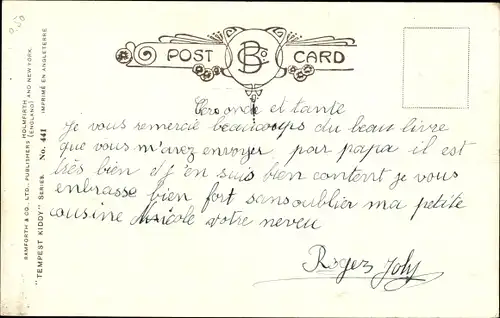 9,50
POST CARD
B & Co
Cer oncle et tante
Je vous remercie beaucoups du beau livre
que vous m'avez envoyer par papa il est
très bien et j'en suis bien content je vous
embrasse bien fort sans oublier ma petite
cousine Nicole votre neveu
Roger Joly
BAMFORTH & CO. LTD., PUBLISHERS HOLMFIRTH
(ENGLAND) AND NEW YORK
"TEMPEST KIDDY" SERIES. No. 441 IMPRIMÉ EN ANGLETERRE